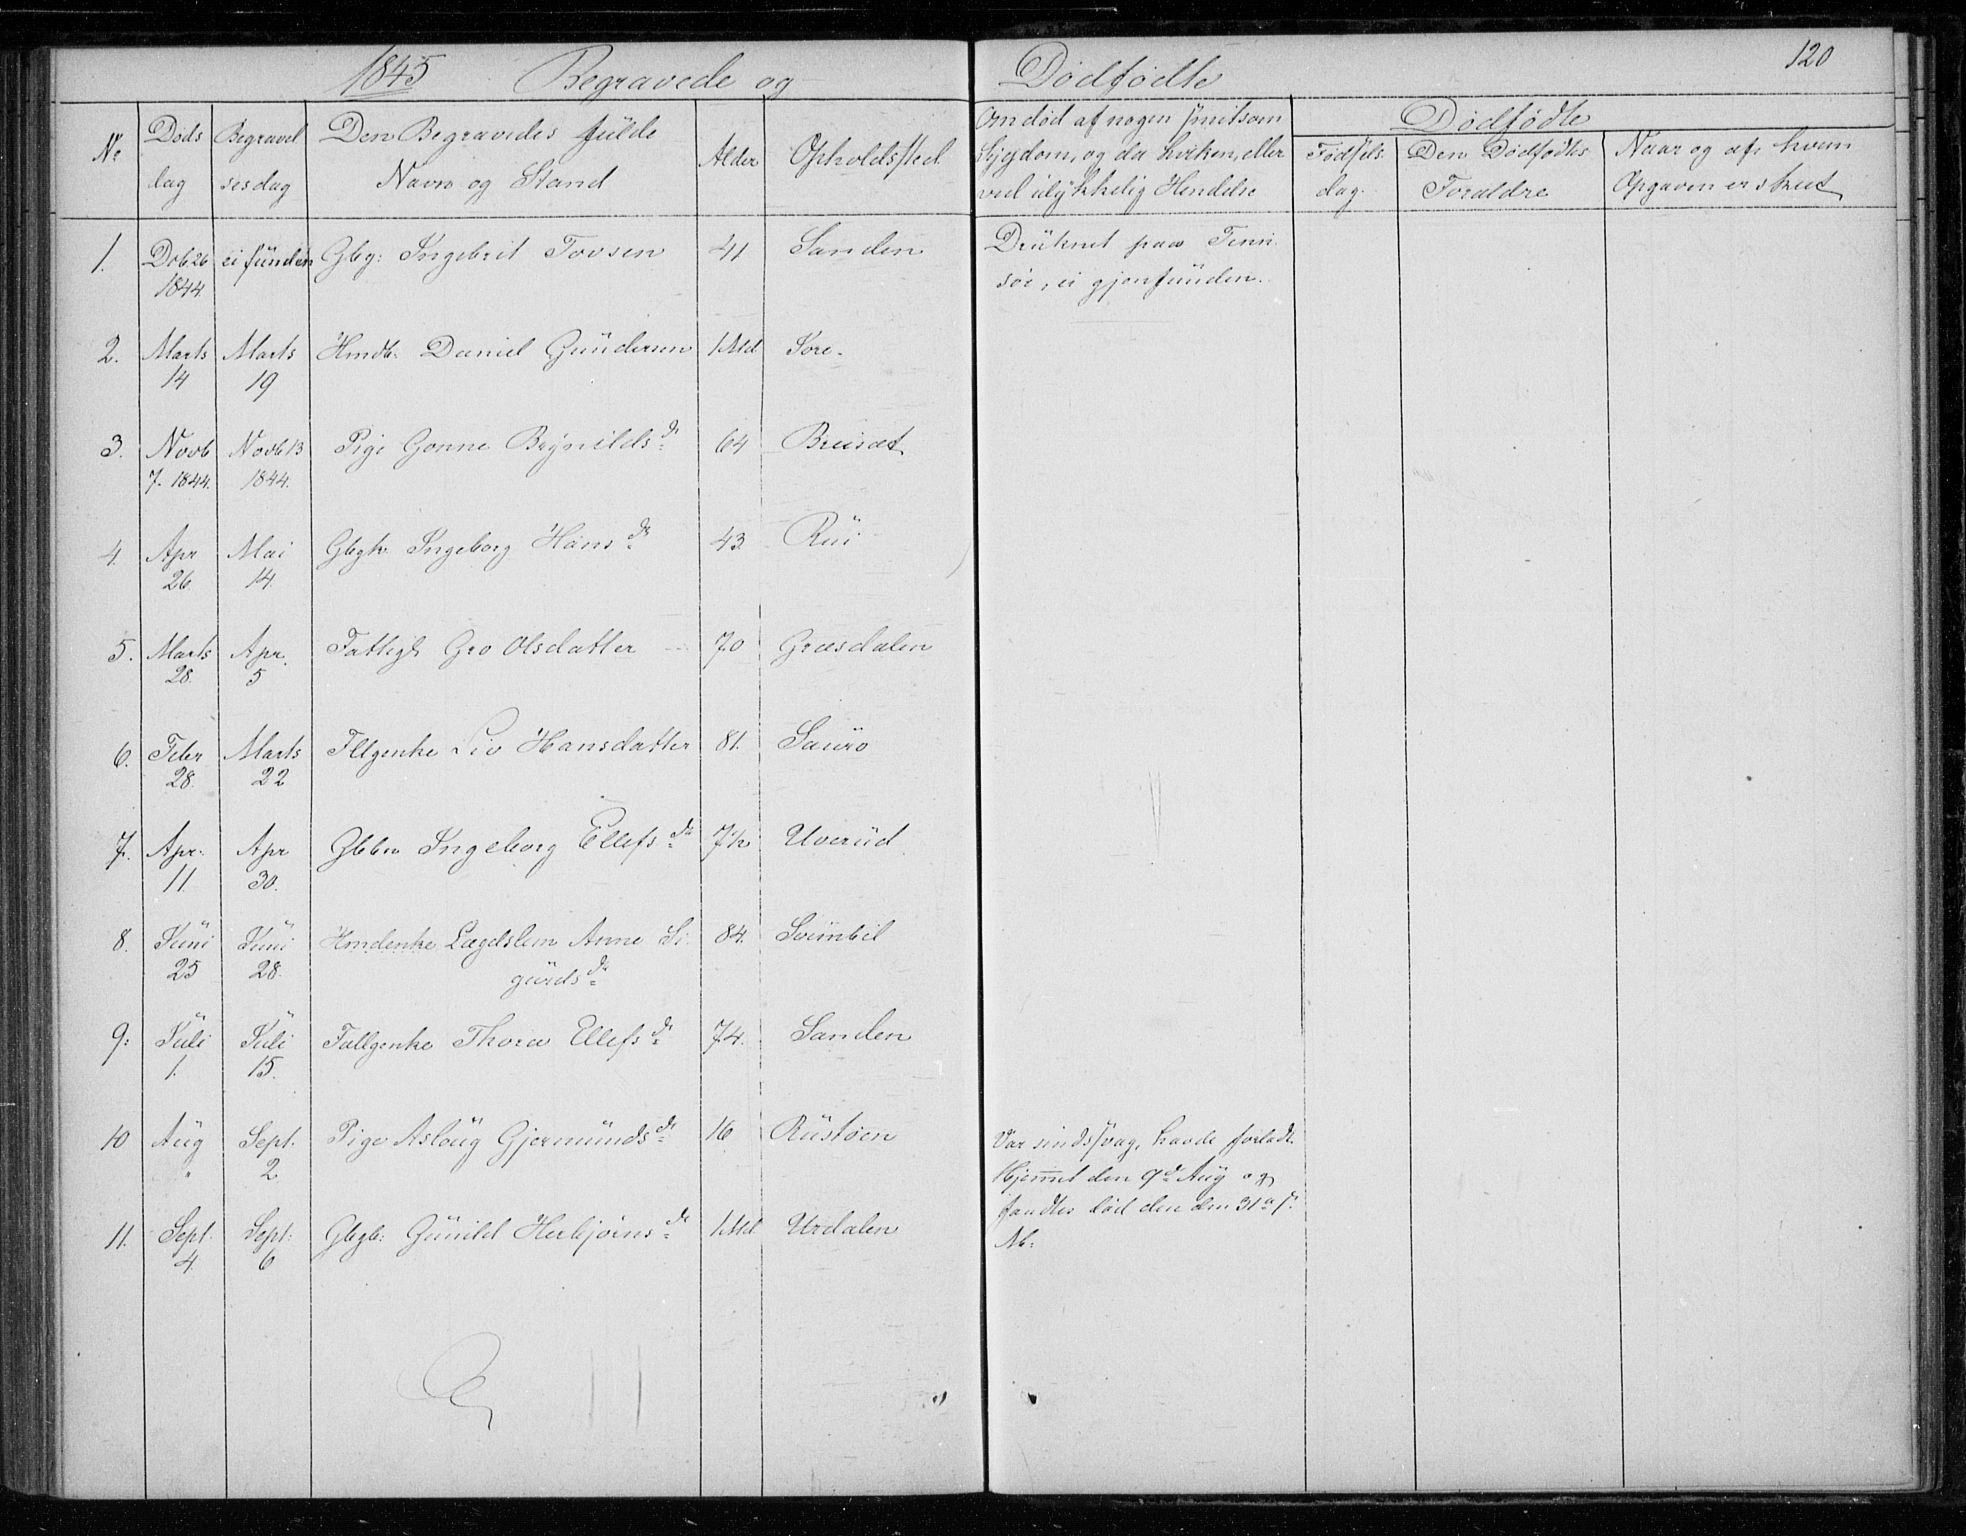 120
1845 Begravede og Dødfødte
No Døds dag Begravelsesdag Den Begravedes fulde Navn og Stand Alder Opholdssted Om død af nogen smitsom Sygdom, og da hvilken, eller ved ulykkelig Hendelse Dødfødte
Fødsels dag. Den Dødfødtes Foraldre Naar og af hvem Opgaven er skeet
1. Dcb 26 1844 ei funden Gbg: Ingebret Tovsen 41 Sanden Druknet paa Tinn-
søe, ei gjenfunden.
2. Marts 14 Marts 19 Hmdb: Daniel Gundersen 1 Md Sore.
3. Novb 7. 1844. Novb 13 1844. Pige Gonne Brynildsdr 64 Breisæt
4. Apr 26. Mai 14. Gbgk Ingeborg Hansdr 43. Rui
5. Marts 28. Apr. 5 Fattigl Gro Olsdatter 70 Græsdalen
6. Febr 28. Marts 22 Fllgenke Liv Hansdatter 81. Sauro
7. Apr. 11. Apr 30. Ingeborg Ellefsdr 7½ Uverud
8. Juni 25 Juni 28. Hmdenke Lægdslem Anne Si-
gurdsdr 84. Svimbil
9. Juli 1. Juli 15. Fallgenke Thora Ellefsdr 74. Sanden
10 Aug " Sept. 2 Pige Aslaug Gjermundsdr 16 Rustøen Var sindssvag, havde forladt
Hjemmet den 9d Aug og
fandtes død den den 31te s.
11. Sept. 4. Sept. 6 Gbgb: Gunild Herbjørnsdr 1 Md Urdalen M: